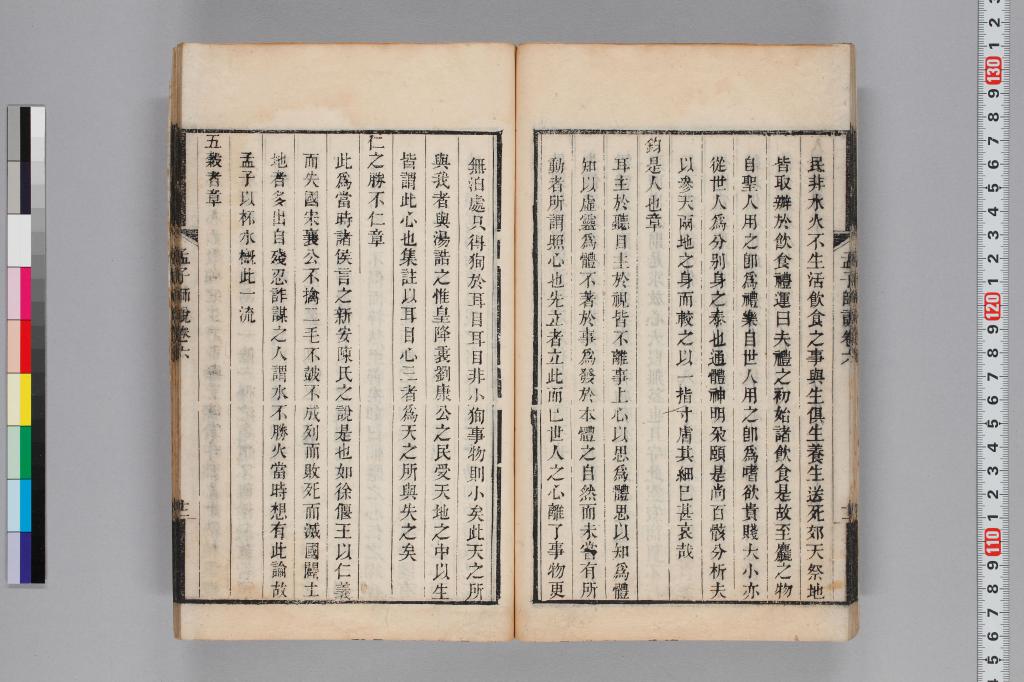 民非水火不生活飲食之事與生俱生養生送死郊天祭地
皆取辦於飲食禮運曰夫禮之初始諸飲食是故至麤之物
自聖人用之卽為禮樂自世人用之卽為嗜欲貴賤大小亦
從世人為分别身之泰也通體神明朶頤是尚百骸分析夫
以參天兩地之身而較之以一指寸膚其細已甚哀哉
鈞是人也章
耳主於聽目主於視皆不離事上心以思為體思以知為體
知以虛靈為體不著於事為發於本體之自然而未嘗有所
動者所謂照心也先立者立此而已世人之心離了事物更
無泊處只得狥於耳目耳目非小狥事物則小矣此天之所
與我者與湯誥之惟皇降衷劉康公之民受天地之中以生
皆謂此心也集註以耳目心三者為天之所與失之矣
仁之勝不仁章
此為當時諸侯言之新安陳氏之說是也如徐偃王以仁義
而失國宋襄公不擒二毛不鼓不成列而敗死而滅國闢土
地者多出自殘忍詐謀之人謂水不勝火當時想有此論故
孟子以杯水概此一流
五穀者章
孟子師說卷六
十二